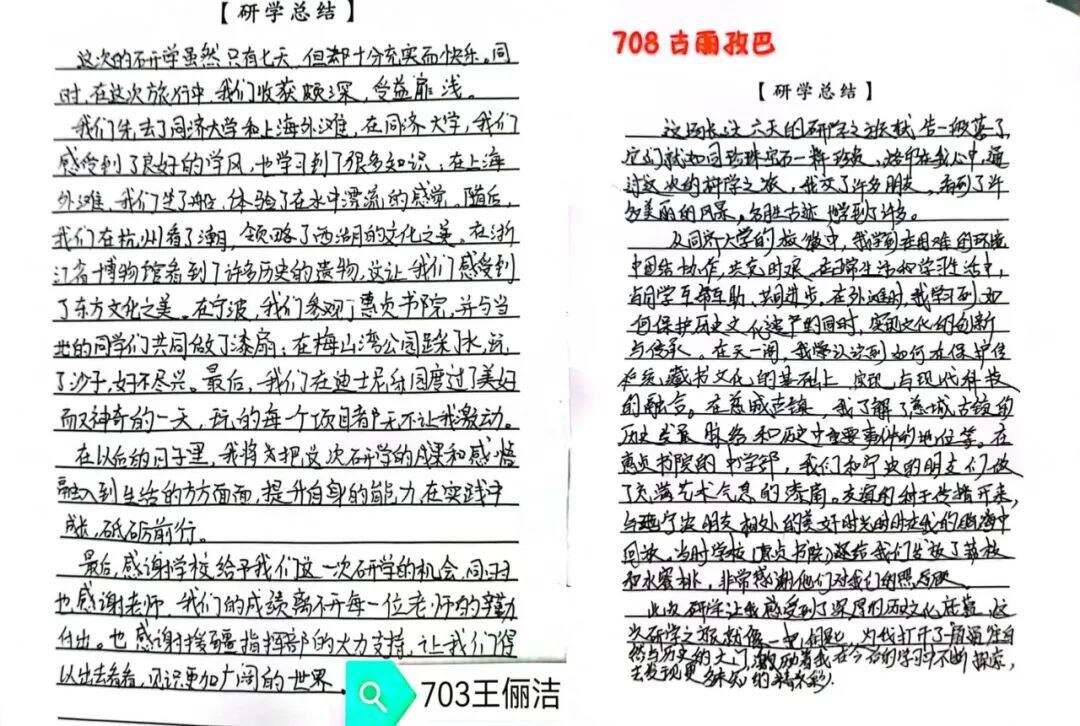 【研学总结】
这次的研学虽然只有七天,但都十分充实而快乐。同
时,在这次旅行中,我们收获颇深,受益扉浅。
我们先去了同济大学和上海外滩,在同济大学,我们
感受到了良好的学风,也学习到了很多知识;在上海
外滩,我们坐了船,体验了在水中漂流的感觉。随后,
我们在杭州看了潮,领略了西湖的文化之美。在浙
江省博物馆看到了许多历史的遗物,这让我们感受到
了东方文化之美。在宁波,我们参观了惠贞书院,并与当
地的同学们共同做了漆扇;在梅山湾公园踩了水,玩
了沙子,好不尽兴。最后,我们在迪士尼乐园度过了美好
而又神奇的一天,玩的每个项目都无不让我激动。
在以后的日子里,我将会把这次研学的成果和感悟
融入到生活的方方面面,提升自身的能力,在实践中
成长,砥砺前行。
最后,感谢学校给予我们这一次研学的机会,同时
也感谢老师,我们的成绩离不开每一位老师的辛勤
付出。也感谢援疆指挥部的大力支持,让我们得
以出去看看,见识更加广阔的世界。
703王俪洁
708古丽孜巴
【研学总结】
这场长达六天的研学之旅就告一段落了,
它们就如同珍珠宝石一样珍贵,烙印在我心中,通
过这次的研学之旅,我交了许多朋友,看到了许
多美丽的风景。名胜古迹 也学到了许多。
从同济大学的校徽中,我学到在困难的环境
中团结协作,共克时艰。在日常生活和学习生活中,
与同学互帮互助、共同进步。在外滩时,我学习到如
何保护历史文化遗产的同时,实现文化的创新
与传承。在天一阁,我学认识到如何在保护传
和统藏书文化的基础上,实现与现代科技
的融合。在慈城古镇,我了解了慈城古镇的
历史发展脉络和历史中重要事件的地位等。在
惠贞书院的中学部,我们和宁波的朋友们做
了充满艺术气息的漆扇。友谊的种子传播开来,
与宁波朋友相处的美好时光时时在我的脑海中
回放。当时学校(惠贞书院)还给我们发放了荔枝
和水蜜桃,非常感谢他们对我们的照顾。
此次研学让我感受到了深厚的历史文化底蕴,这
次研学之旅就像一把钥匙,为我打开了一扇通往自
然与历史的大门,激励着我在今后的学习中不断探索,
去发现更多未知的精彩。